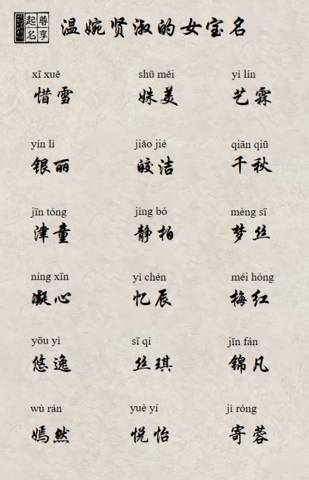 尊享起名
温婉贤淑的女宝名
xī xuě shū měi yì lín
惜雪 姝美 艺霖
yín lì jiǎo jié qiān qiū
银丽 皎洁 千秋
jīn tóng jìng bó mèng sī
津童 静柏 梦丝
níng xīn yì chén méi hóng
凝心 忆辰 梅红
yōu yì sī qí jǐn fán
悠逸 丝琪 锦凡
wù rán yuè yí jì róng
嫣然 悦怡 寄蓉